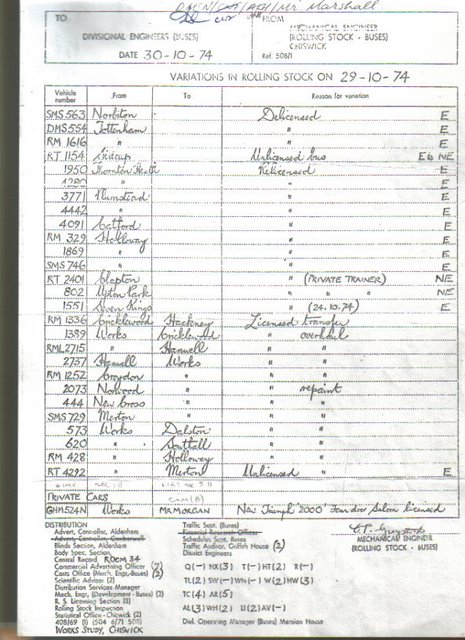 Mr Marshall
TO
FROM
DIVISIONAL ENGINEERS (BUSES)
MECHANICAL ENGINEER
(ROLLING STOCK - BUSES)
CHISWICK
DATE 30-10-74
Ref. 508/1
VARIATIONS IN ROLLING STOCK ON 29-10-74
Vehicle number From To Reason for variation
SMS 563 Norbiton Delicensed E
DMS 554 Tottenham " E
RM 1616 " " E
RT 1154 Sidcup Unlicensed bus E to NE
1950 Thornton Heath Delicensed E
4280 " " E
3771 Plumstead " E
4442 " " E
4091 Catford " E
RM 329 Holloway " E
1869 " " E
SMS 746 " " E
RT 2401 Clapton " (PRIVATE TRAINER) NE
802 Upton Park " " " NE
1551 Seven Kings " (24.10.74) E
RM 1336 Cricklewood Hackney Licensed transfer
1389 Works Cricklewood " overhaul
RML 2715 " Hanwell " "
2737 Hanwell Works " "
RM 1252 Croydon " " "
2073 Norwood " " repaint
444 New Cross " " "
SMS 729 Merton " " "
573 Works Dalston " "
620 " Southall " "
RM 428 " Holloway " "
RT 4292 " Merton Unlicensed " E
PRIVATE CARS
GHM 524N Works MR MORGAN New Triumph '2000' Four door Saloon licensed
DISTRIBUTION
Advert. Controller, Aldenham
Advert. Controller, Camberwell
Blinds Section, Aldenham
Body Spec. Section,
Central Record ROOM 34
Commercial Advertising Officer (7)
Costs Office (Mech. Engr.-Buses) (2)
Scientific Advisor (2)
Distribution Services Manager
Mech. Engr. (Development - Buses) (2)
R. S. Licensing Section (3)
Rolling Stock Inspection
Statistical Office - Chiswick (2)
WORKS STUDY, CHISWICK
Traffic Supt. (Buses)
Financial Research Officer
Schedules Supt. Buses
Traffic Auditor, Griffith House (2)
District Engineers
Q(-) NX(3) T(-) HT(2) R(-)
TL(2) SW(-) WN(-) W(2) HW(3)
TC(4) AR(5)
AL(3) WH(2) U(2) AV(-)
Divl. Operating Manager (Buses) Mansion House
MECHANICAL ENGINEER
(ROLLING STOCK - BUSES)